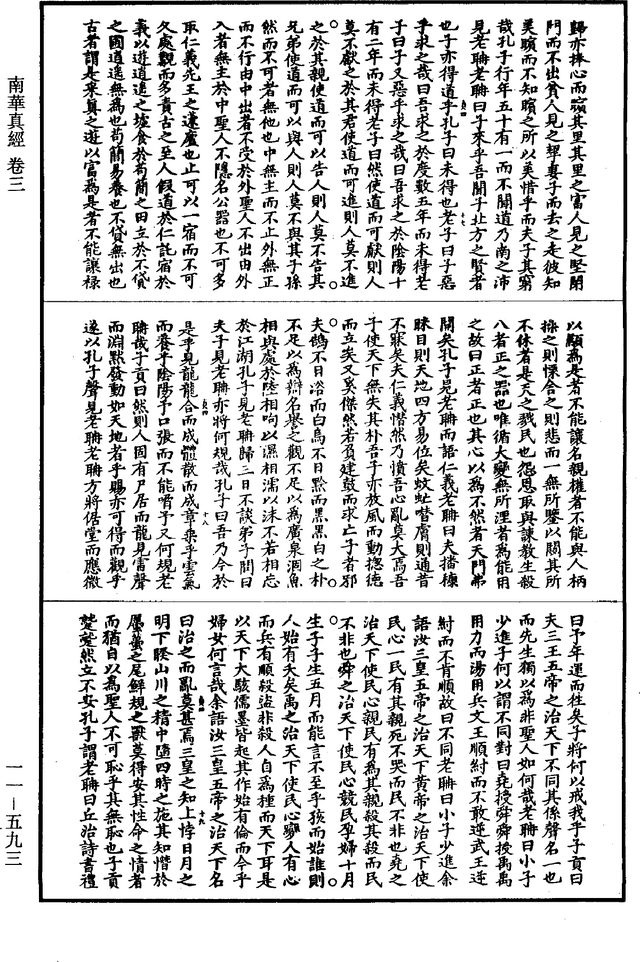 南華真經 卷三
一一—五九三
歸亦捧心而矉其里其里之富人見之堅閉
門而不出貧人見之挈妻子而去之走彼知
美矉而不知矉之所以美惜乎而夫子其窮
哉孔子行年五十有一而不聞道乃南之沛
見老聃老聃曰子來乎吾聞子北方之賢者
也子亦得道乎孔子曰未得也老子曰子惡
乎求之哉曰吾求之於度數五年而未得老
子曰子又惡乎求之哉曰吾求之於陰陽十
有二年而未得老子曰然使道而可獻則人
莫不獻之於其君使道而可進則人莫不進
之於其親使道而可以告人則人莫不告其
兄弟使道而可以與人則人莫不與其子孫
然而不可者無他也中無主而不止外無正
而不行由中出者不受於外聖人不出由外
入者無主於中聖人不隱名公器也不可多
取仁義先王之蘧廬也止可以一宿而不可
久處觀而多責古之至人假道於仁託宿於
義以遊逍遙之墟食於苟簡之田立於不貸
之圃逍遙無為也苟簡易養也不貸無出也
古者謂是采真之遊以富為是者不能讓祿
以顯為是者不能讓名親權者不能與人柄
操之則慄舍之則悲而一無所鑒以闚其所
不休者是天之戮民也怨恩取與諫教生殺
八者正之器也唯循大變無所湮者為能用
之故曰正者正也其心以為不然者天門弗
開矣孔子見老聃而語仁義老聃曰夫播糠
眯目則天地四方易位矣蚊虻噆膚則通昔
不寐矣夫仁義憯然乃憤吾心亂莫大焉吾
子使天下無失其朴吾子亦放風而動摠德
而立矣又奚傑然若負建鼓而求亡子者邪
夫鵠不日浴而白烏不日黔而黑黑白之朴
不足以為辯名譽之觀不足以為廣泉涸魚
相與處於陸相呴以濕相濡以沫不若相忘
於江湖孔子見老聃歸三日不談弟子問曰
夫子見老聃亦將何規哉孔子曰吾乃今於
是乎見龍龍合而成體散而成章乘乎雲氣
而養乎陰陽予口張而不能嗋予又何規老
聃哉子貢曰然則人固有尸居而龍見雷聲
而淵默發動如天地者乎賜亦可得而觀乎
遂以孔子聲見老聃老聃方將倨堂而應微
曰予年運而往矣子將何以戒我乎子貢曰
夫三王五帝之治天下不同其係聲名一也
而先生獨以為非聖人如何哉老聃曰小子
少進子何以謂不同對曰堯授舜舜授禹禹
用力而湯用兵文王順紂而不敢逆武王逆
紂而不肯順故曰不同老聃曰小子少進余
語汝三皇五帝之治天下黃帝之治天下使
民心一民有其親死不哭而民不非也堯之
治天下使民心親民有為其親殺其殺而民
不非也舜之治天下使民心競民孕婦十月
生子子生五月而能言不至乎孩而始誰則
人始有夭矣禹之治天下使民心變人有心
而兵有順殺盜非殺人自為種而天下耳是
以天下大駭儒墨皆起其作始有倫而今乎
婦女何言哉余語汝三皇五帝之治天下名
曰治之而亂莫甚焉三皇之知上悖日月之
明下睽山川之精中隳四時之施其知憯於
蠆之尾鮮規之獸莫得安其性命之情者
而猶自以為聖人不可恥乎其無恥也子貢
蹵蹵然立不安孔子謂老聃曰丘治詩書禮